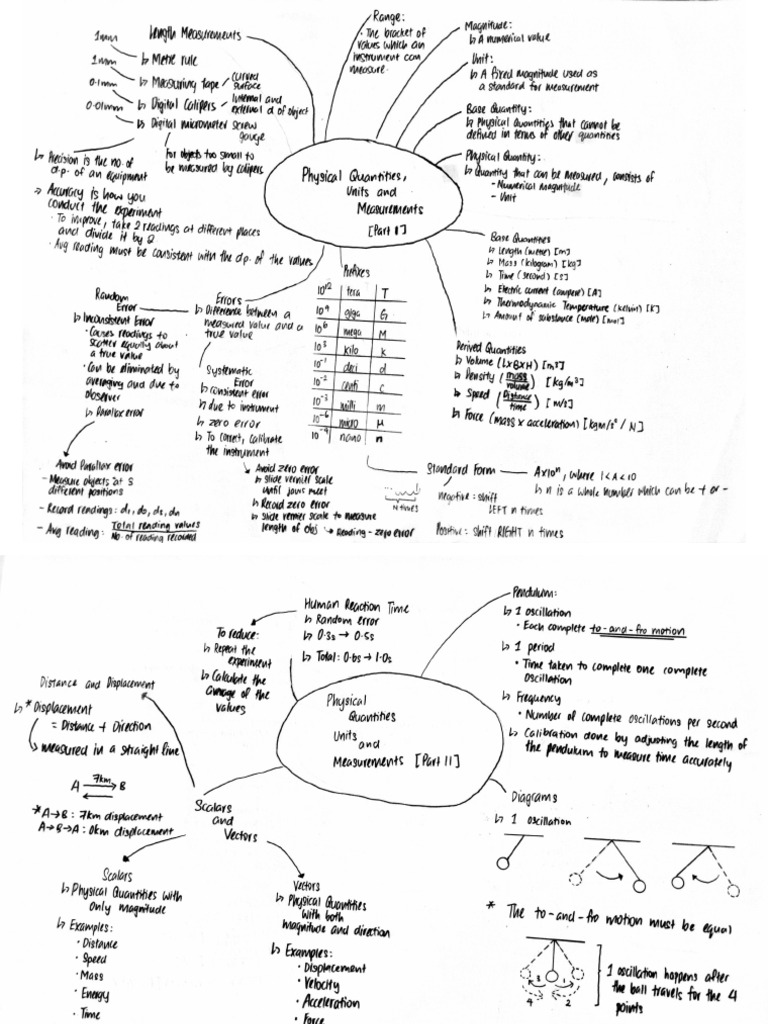 Length Measurements
1mm
↳ Metre rule
1mm
↳ Measuring tape
curved
surface
0.1mm
↳ Digital Calipers
internal and
external d of object
0.01mm
↳ Digital micrometer screw
gauge
For objects too small to
be measured by calipers
↳ Precision is the no. of
d.p. of an equipment
→ Accuracy is how you
conduct the experiment
• To improve, take 2 readings at different places
and divide it by 2
• Avg reading must be consistent with the d.p. of the values
Range:
• The bracket of
values which an
instrument can
measure.
Magnitude:
↳ A numerical value
Unit:
↳ A fixed magnitude used as
a standard for measurement
Base Quantity:
↳ Physical Quantities that cannot be
defined in terms of other quantities
Physical Quantity:
↳ Quantity that can be measured, consists of
- Numerical magnitude
- Unit
Physical Quantities,
Units and
Measurements
[Part I]
Base Quantities
↳ Length (metre) [m]
↳ Mass (kilogram) [kg]
↳ Time (second) [s]
↳ Electric current (ampere) [A]
↳ Thermodynamic Temperature (kelvin) [K]
↳ Amount of substance (mole) [mol]
Derived Quantities
↳ Volume (L×B×H) [m³]
↳ Density (mass/volume) [kg/m³]
↳ Speed (Distance/time) [m/s]
↳ Force (mass × acceleration) [kgm/s² / N]
Prefixes
10¹² tera T
10⁹ giga G
10⁶ mega M
10³ kilo k
10⁻¹ deci d
10⁻² centi c
10⁻³ milli m
10⁻⁶ micro μ
10⁻⁹ nano n
Errors
↳ Difference between a
measured value and a
true value
Random
Error
↳ Inconsistent Error
• Causes readings to
scatter equally about
a true value
• Can be eliminated by
averaging and due to
observer
↳ Parallax error
Systematic
Error
↳ consistent error
↳ due to instrument
↳ zero error
↳ To correct, calibrate
the instrument
Avoid Parallax error
- Measure objects at 5
different positions
- Record readings: d₁, d₂, d₃, dₙ
- Avg reading: Total reading values
No. of reading recorded
Avoid zero error
↳ slide vernier scale
until jaws meet
↳ Record zero error
↳ slide vernier scale to measure
length of obj
↳ Reading - zero error
Standard Form — A×10ⁿ, where 1<A<10
↳ n is a whole number which can be + or -
N times
negative: shift
LEFT n times
Positive: shift RIGHT n times
Human Reaction Time
↳ Random error
↳ 0.3s → 0.5s
↳ Total: 0.6s → 1.0s
To reduce:
↳ Repeat the
experiment
↳ Calculate the
average of the
values
Pendulum:
↳ 1 oscillation
• Each complete to-and-fro motion
↳ 1 period
• Time taken to complete one complete
oscillation
↳ Frequency
• Number of complete oscillations per second
↳ Calibration done by adjusting the length of
the pendulum to measure time accurately
Physical
Quantities
Units
and
Measurements [Part II]
Distance and Displacement
↳ * Displacement
= Distance + Direction
measured in a straight line
7km
A B
* A→B : 7km displacement
A→B→A : 0km displacement
Scalars
and
Vectors
Scalars
↳ Physical Quantities with
only magnitude
↳ Examples:
• Distance
• Speed
• Mass
• Energy
• Time
Vectors
↳ Physical Quantities
with both
magnitude and direction
↳ Examples:
• Displacement
• Velocity
• Acceleration
• Force
Diagrams
↳ 1 oscillation
* The to-and-fro motion must be equal
3 1
4 2
1 oscillation happens after
the ball travels for the 4
points